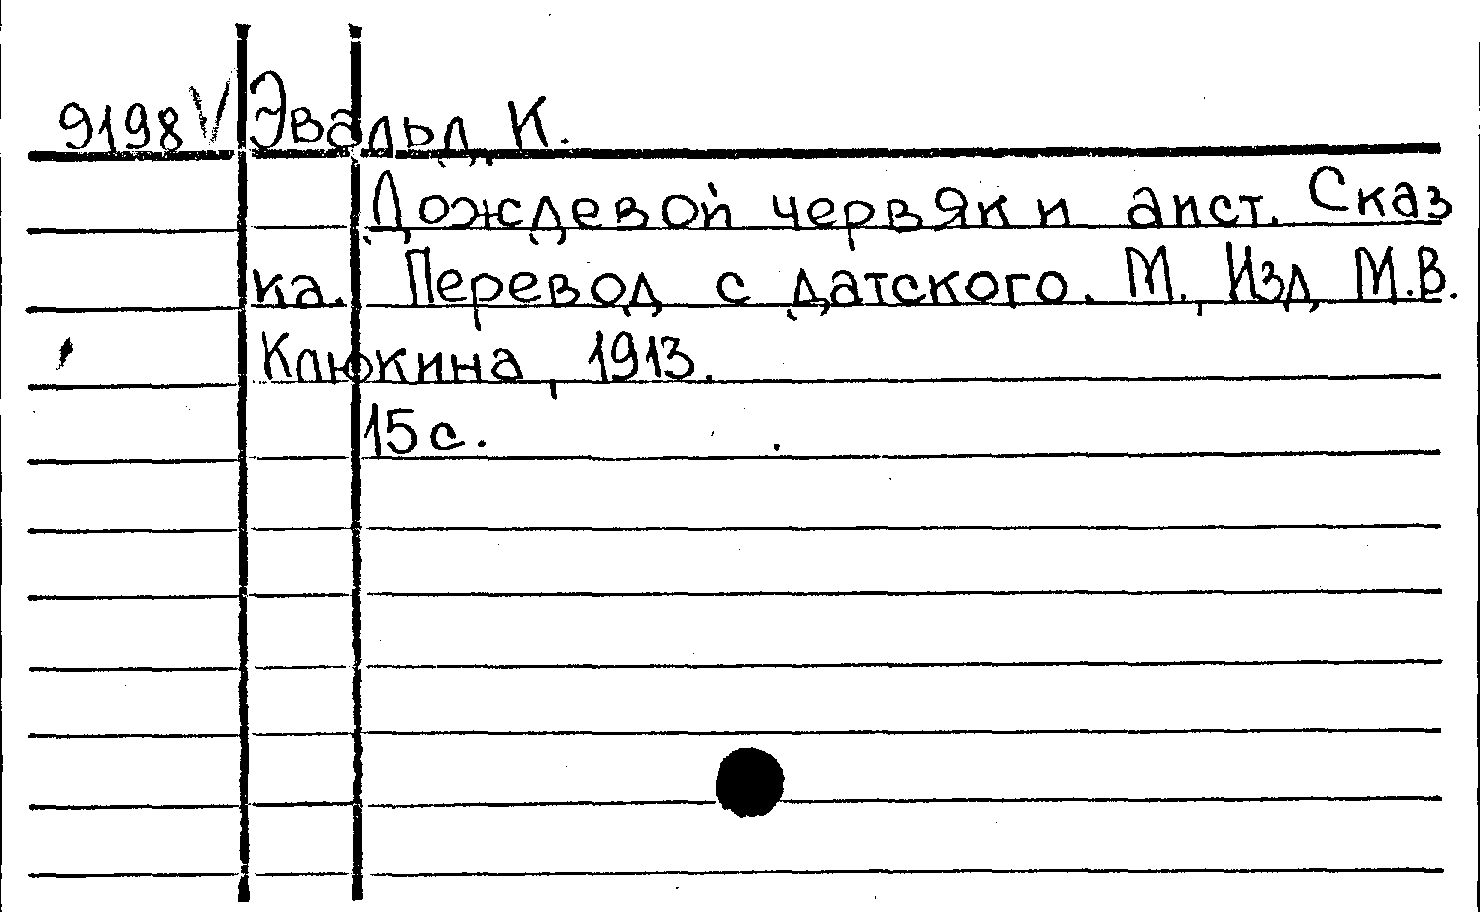 9198 V Эвальд, К.
Дождевой червяк и аист. Сказ
ка. Перевод с датского. М., Изд. М.В.
Клюкина, 1913.
15 с.